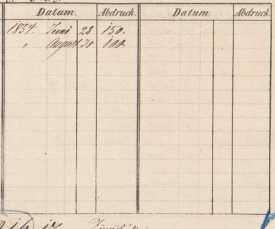 Datum. Abdruck. Datum. Abdruck.
1857. Juni 28 150.
" August 31 100.